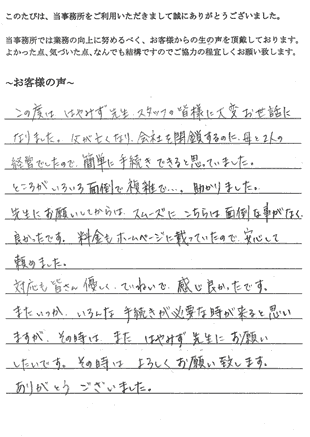 このたびは、当事務所をご利用いただきまして誠にありがとうございました。
当事務所では業務の向上に努めるべく、お客様からの生の声を頂戴しております。
よかった点、気づいた点、なんでも結構ですのでご協力の程宜しくお願い致します。
～お客様の声～
この度は はやみず先生、スタッフの皆様に大変お世話に
なりました。父が亡くなり、会社を閉鎖するのに、母と2人の
経営でしたので、簡単に手続きできると思っていました。
ところがいろいろ面倒で複雑で…。助かりました。
先生にお願いしてからは、スムーズに こちらは面倒な事がなく、
良かったです。料金もホームページに載っていたので、安心して
頼めました。
対応も皆さん優しく、ていねいで、感じ良かったです。
またいつか、いろんな手続きが必要な時が来ると思い
ますが、その時は、また はやみず先生にお願い
したいです。その時は よろしくお願い致します。
ありがとう ございました。